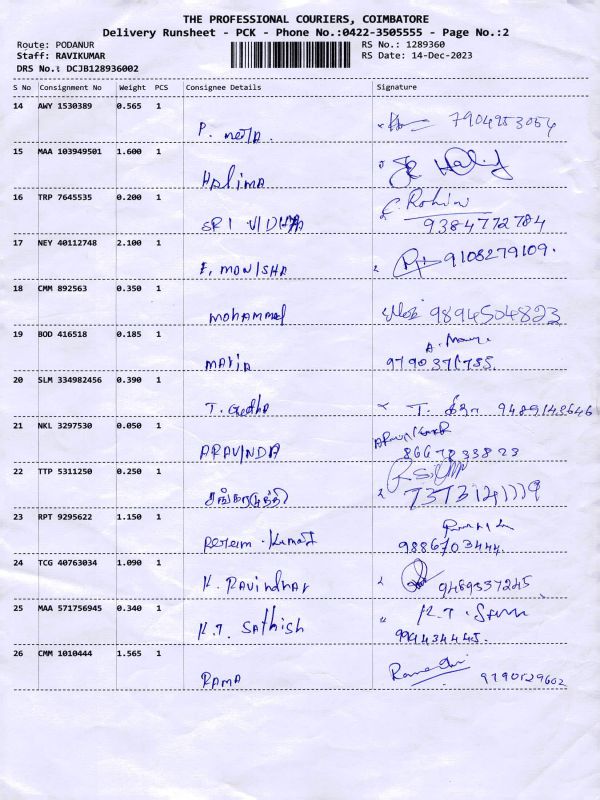 THE PROFESSIONAL COURIERS, COIMBATORE
Delivery Runsheet - PCK - Phone No.:0422-3505555 - Page No.:2
Route: PODANUR RS No.: 1289360
Staff: RAVIKUMAR RS Date: 14-Dec-2023
DRS No.: DCJB128936002
S No Consignment No Weight PCS Consignee Details Signature
14 AWY 1530389 0.565 1
P. 7904953054
15 MAA 103949501 1.600 1
HAlimA
16 TRP 7645535 0.200 1
C. Rohin
SRI VIDHYA 9384772784
17 NEY 40112748 2.100 1
MONISHA 9108279109.
18 CMM 892563 0.350 1
mohAmmed 9894504823
19 BOD 416518 0.185 1
A.
mARIA
20 SLM 334982456 0.390 1
T. Geetha T. 9489143646
21 NKL 3297530 0.050 1
ARAVINDA 8667833823
22 TTP 5311250 0.250 1
23 RPT 9295622 1.150 1
Kumar 9886703444.
24 TCG 40763034 1.090 1
K. RAvindhar 9489337245
25 MAA 571756945 0.340 1
K.T.
K.T. SAthish 994434445.
26 CMM 1010444 1.565 1
RAMA 9790129602